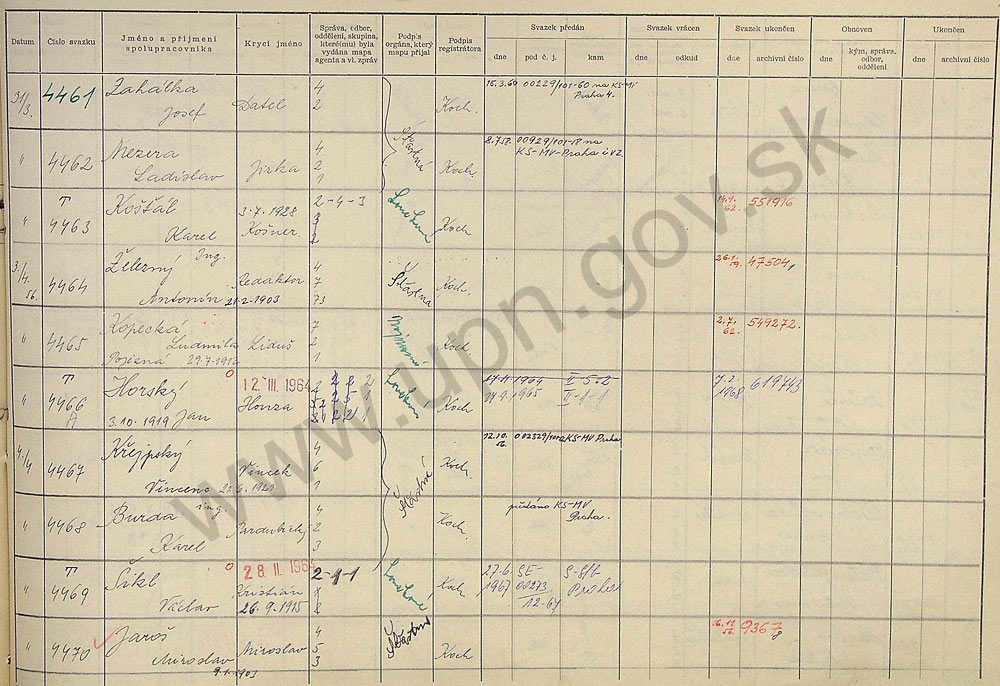 Datum
Číslo svazku
Jméno a příjmení spolupracovníka
Krycí jméno
Správa, odbor, oddělení, skupina, které(mu) byla vydána mapa agenta a vl. zpráv
Podpis orgána, který mapu přijal
Podpis registrátora
Svazek předán
dne
pod č. j.
kam
Svazek vrácen
dne
odkud
Svazek ukončen
dne
archivní číslo
Obnoven
dne
kým, správa, odbor, oddělení
Ukončen
dne
archivní číslo
31/3. 4461 Zahálka Josef Datel 4 2 Koch. 15.3.60 00229/101-60 na KS-MV Praha 4.
" 4462 Mezera Ladislav Jirka 4 2 1 Šťastná Koch. 00929/101-58 na KS-MV-Praha
" T 4463 Košťál Karel 3.7.1928 Košner 2-4-3 Koch 14.9. 62. 551916
3/4. 56. 4464 Železný Ing. Antonín 21.2.1903 Redaktor 4 7 73 Šťastná Koch. 47504
" 4465 Kopecká Ludmila Liduš 7 2 1 Koch. 2.7. 62. 549272.
" T 4466 A Horský Jan 3.10.1919 12. III. 1964 Honza Koch II-5-2 II-1-1 7.2. 1968 619743
4/4 4467 Křejpský Vincenc Vincek 4 6 1 Koch. 12.10. 56. KS-MV Praha
" 4468 Burda ing. Karel 4 2 3 Šťastná Koch. předáno KS-MV Praha.
" T 4469 Šikl Václav 28. II. 1964 Kristián 26.9.1915 2-1-1 Koch 27.6. 1967 SE-00273/12-67 Praha
" 4470 Jaroš Miroslav 9.1.1903 Miroslav 4 5 3 Šťastná Koch 16.11. 56. 9367
www.upn.gov.sk